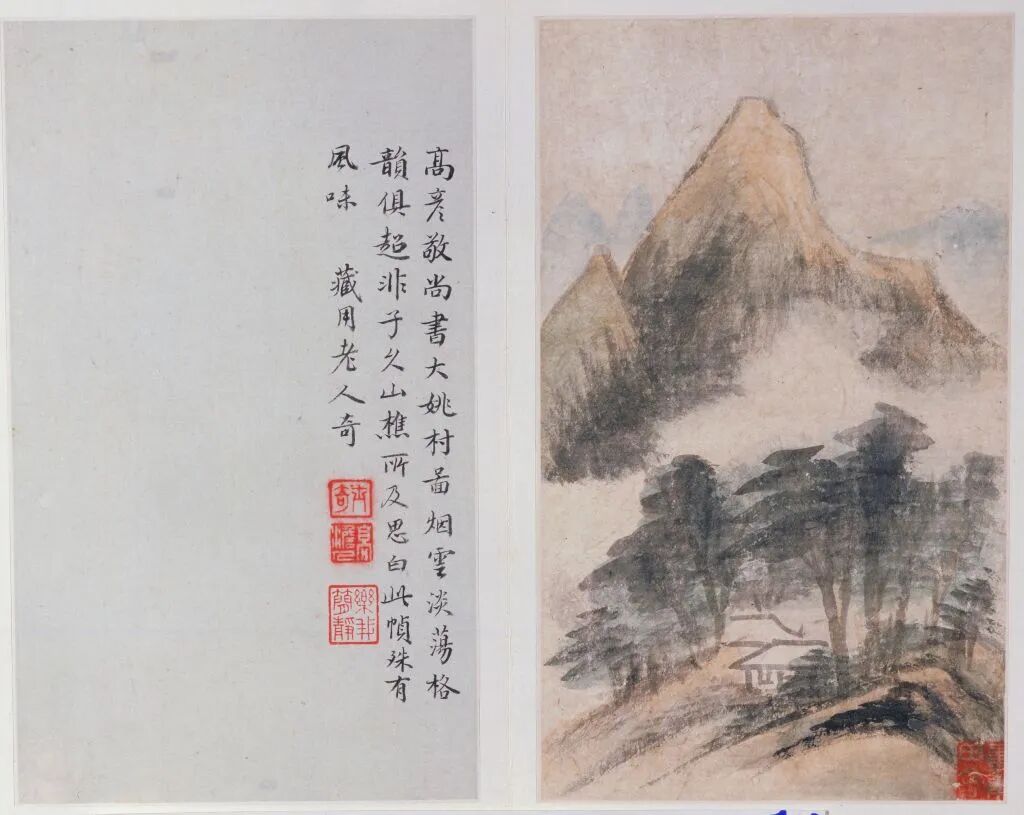 高彦敬尚書大姚村啚烟雲淡蕩格
韻俱超非子久山樵所及思白此幀殊有
風味　藏用老人奇
樂我
簡靜